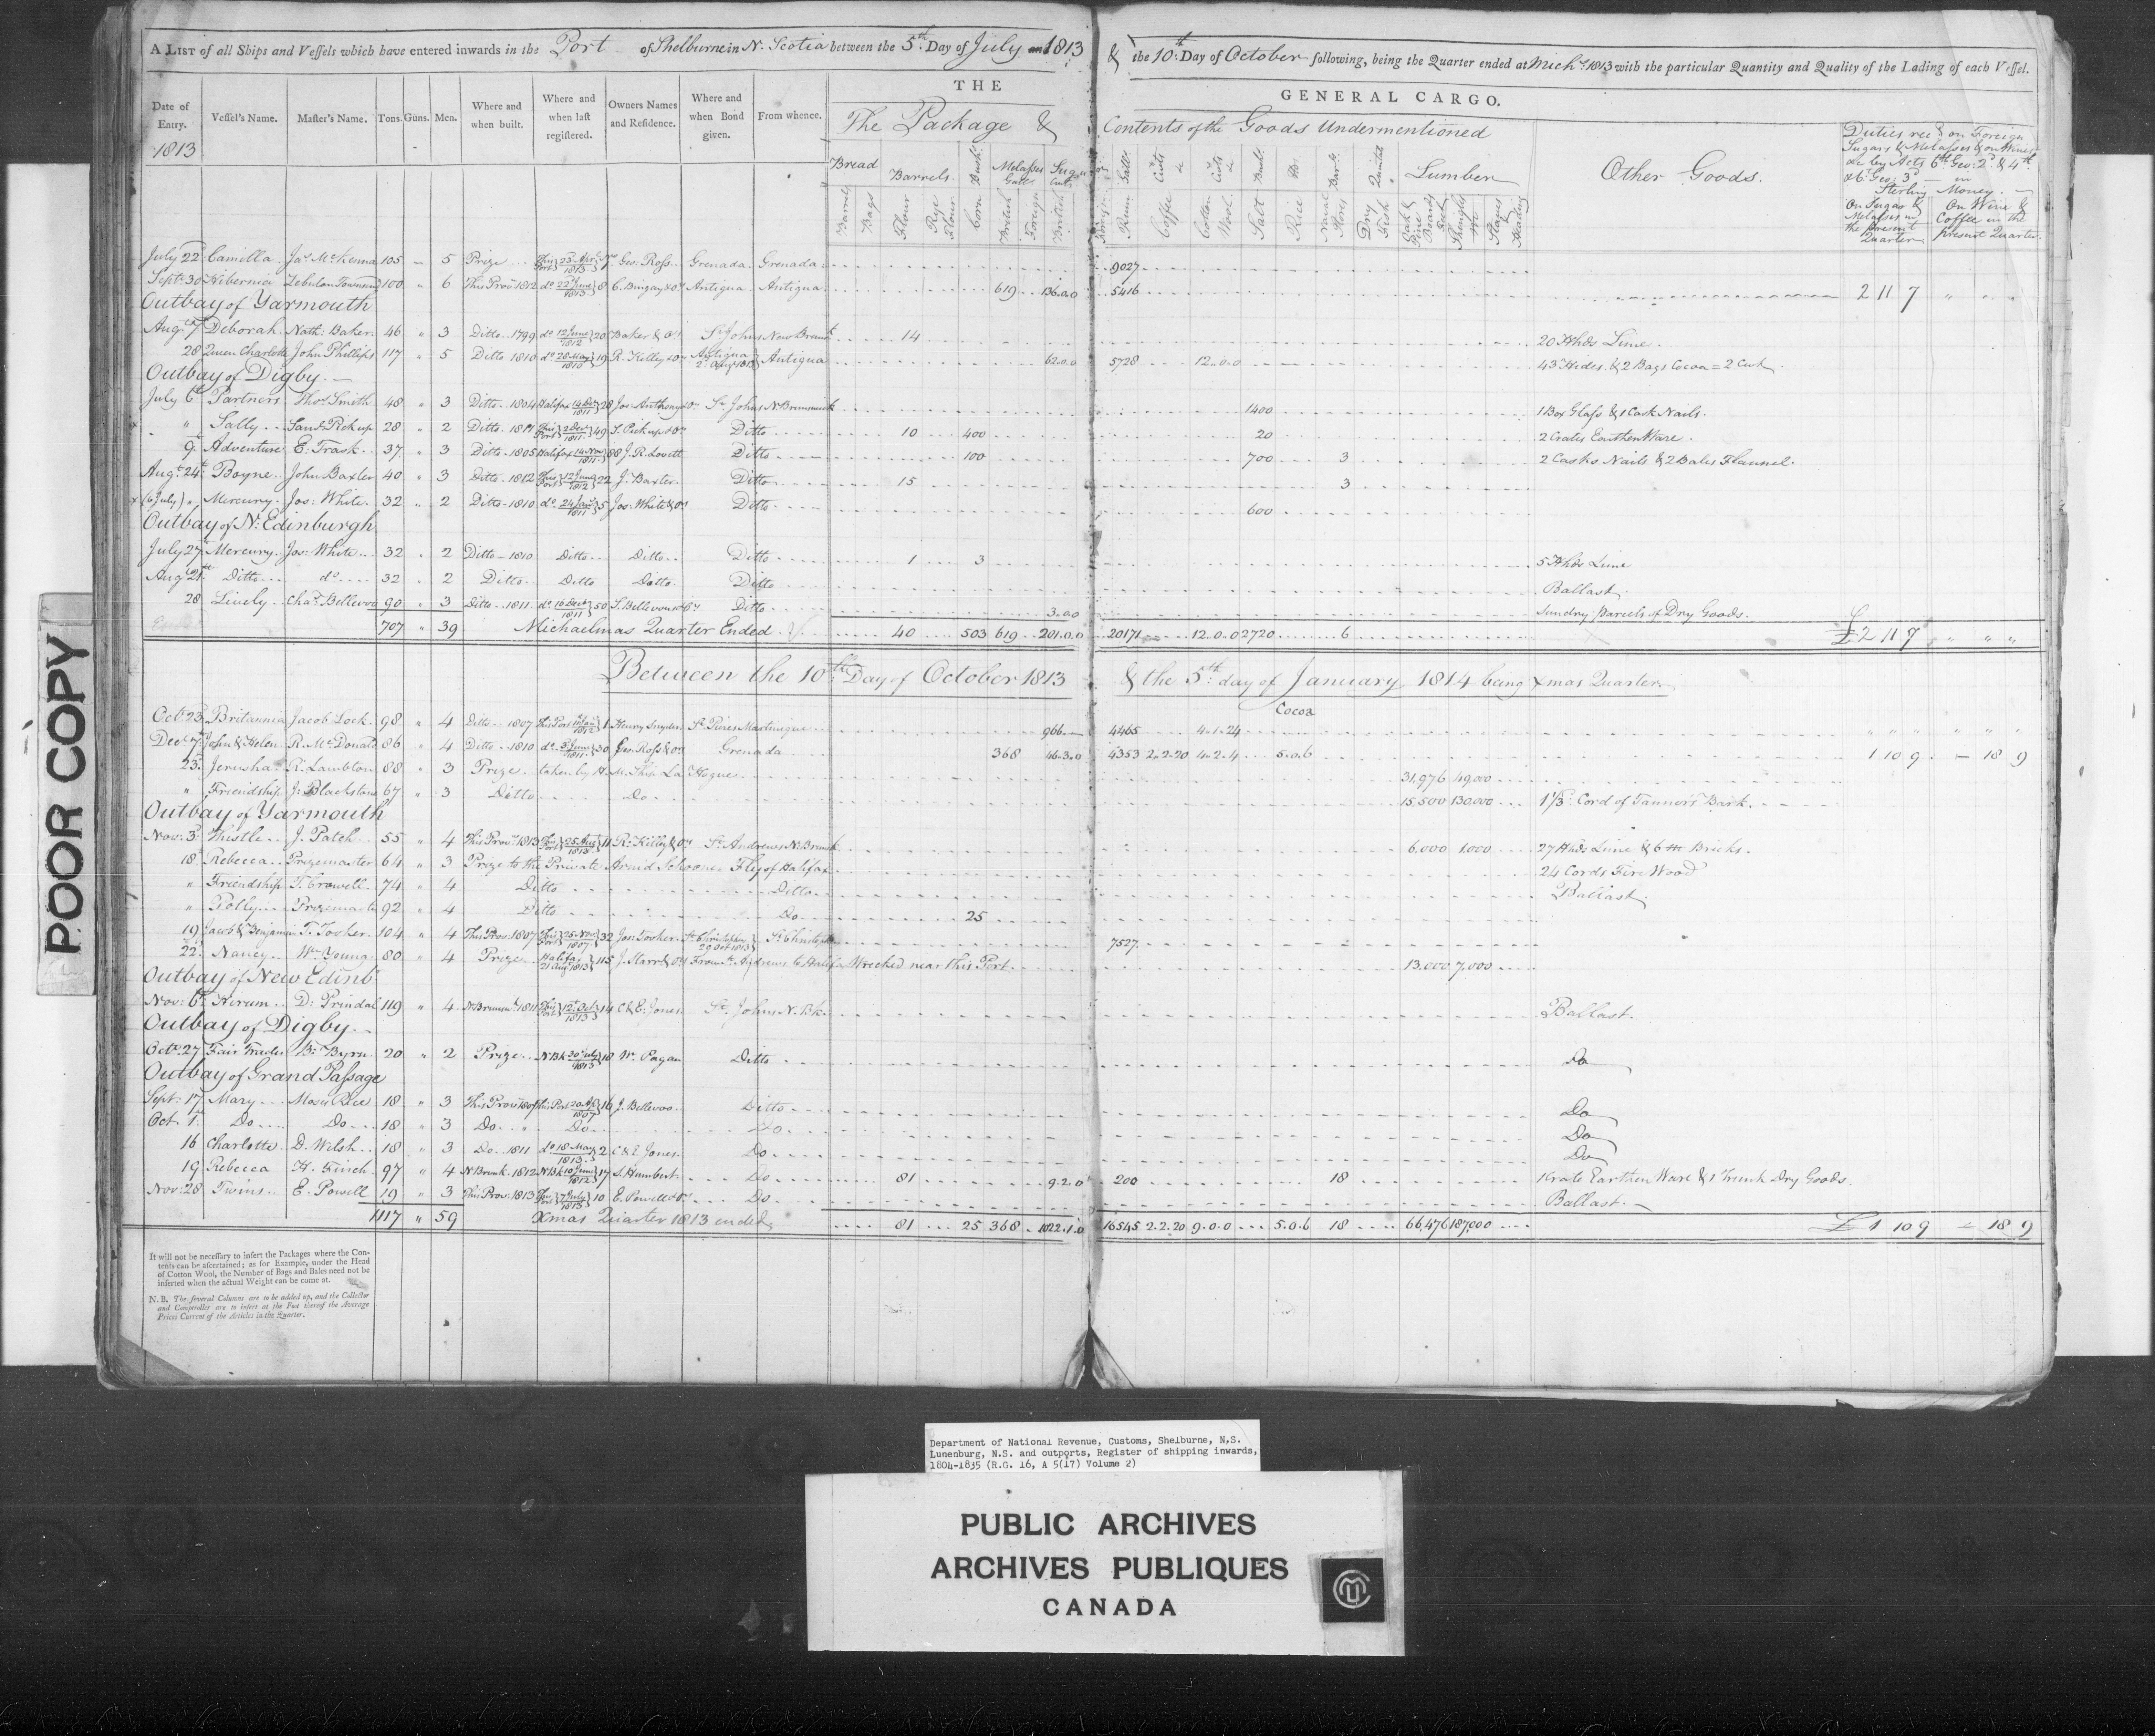 A LIST of all Ships and Vessels which have entered inwards in the Port of Shelburne in N. Scotia between the 5th Day of July 1813 & the 10th Day of October following, being the Quarter ended at Michs 1813 with the particular Quantity and Quality of the Lading of each Vessel.
THE GENERAL CARGO.
Date of Entry. 1813 Vessel's Name. Master's Name. Tons. Guns. Men. Where and when built. Where and when last registered. Owners Names and Residence. Where and when Bond given. From whence. The Package & Contents of the Goods Undermentioned
Bread Barrels Bags Barrels Flour Rye Flour Corn Bush. Melasses Galls British Foreign Sugar Cwts British Foreign Rum Galls Coffee Cwts Cotton Wool Cwts Salt Bush. Rice Naval Stores Bars Dry Fish Quintal Lumber Oak & Pine Boards Feet Shingles Staves Heading Other Goods.
Duties recd on Foreign Sugars & Melasses & on Wines &c by Acts 6th Geo: 2d & 4th & 6 Geo: 3d in Sterling Money.
On Sugar & Melasses in the present Quarter On Wine & Coffee in the present Quarter.
July 22 Camilla Jas McKenna 105 - 5 Prize This Port 23 Apr 1813 Geo. Ross Grenada Grenada 9027
Sept: 30 Hibernia Zebulon Townsend 100 " 6 This Prov 1812 do 22 June 1813 8 Antigua Antigua 619 136.0.0 5416 2 11 7 " " "
Outbay of Yarmouth
Augt 7 Deborah Nath: Baker 46 " 3 Ditto 1799 do 12 June 1812 20 Baker & ors St Johns New Brunsk 14 20 Hhds Lime
28 Queen Charlotte John Phillips 117 " 5 Ditto 1810 do 28 May 1810 19 R. Kelley & ors Antigua Antigua 62.0.0 5728 12.0.0 43 Hides & 2 Bags Cocoa = 2 Cwt
Outbay of Digby.
July 6th Partners Thos Smith 48 " 3 Ditto 1804 Halifax 14 Dec 1811 28 Jos: Anthony & ors St Johns N Brunswick 1400 1 Box Glass & 1 Cask Nails.
" Sally Saml Pickup 28 " 2 Ditto 1811 This Port 2 Dec 1811 49 S. Pickup & ors Ditto 10 400 20 2 Crates Earthen Ware.
9 Adventure E. Trask 37 " 3 Ditto 1805 Halifax 14 Nov 1811 88 J. R. Lovett Ditto 100 700 3 2 Casks Nails & 2 Bales Flannel.
Augt 24th Boyne John Baxter 40 " 3 Ditto 1812 This Port 12 June 1812 22 J. Baxter Ditto 15 3
x (6 July) " Mercury Jos: White 32 " 2 Ditto 1810 do 24 Jany 1811 5 Jos: White & ors Ditto 600
Outbay of N: Edinburgh
July 27 Mercury Jos: White 32 " 2 Ditto 1810 Ditto Ditto Ditto 1 3 5 Hhds Lime
Augt 21st Ditto do 32 " 2 Ditto Ditto Ditto Ditto Ballast
28 Lively Chas Bellevoo 90 " 3 Ditto 1811 do 16 Dect 1811 50 Ditto 3.0.0 Sundry parcels of Dry Goods
707 " 39 Michaelmas Quarter Ended 40 503 619 201.0.0 20171 12.0.0 2720 6 £2 11 7 " " "
Between the 10th Day of October 1813 & the 5th day of January 1814 being Xmas Quarter
Cocoa
Oct: 23d Britannia Jacob Lock 98 " 4 Ditto 1807 This Port 1812 1 Henry Snyder St Pieres Martinique 966 4465 4.1.24 " " " " " "
Dec 7 John & Helen R. McDonald 86 " 4 Ditto 1810 do June 1811 30 Geo. Ross & ors Grenada 368 46.3.0 4353 2.2.20 4.2.4 5.0.6 1 10 9 - 18 9
23 Jerusha R. Lambton 88 " 3 Prize taken by H. M. Ship La Hogue 31,976 49,000
" Friendship J: Blackstone 67 " 3 Ditto Do 15,500 130,000 1 1/3 Cord of Tanners Bark
Outbay of Yarmouth
Nov: 3 Thistle J. Patch 55 " 4 This Prov 1813 This Port 25 Aug 1813 11 R. Killey & ors St Andrews N. Brunsk 6,000 1,000 27 Hhds Lime & 6 m Bricks.
18 Rebecca Prizemaster 64 " 3 Prize to the Private Armd Schooner Fly of Halifax 24 Cords Fire Wood
" Friendship T. Crowell 74 " 4 Ditto Ditto Ballast
" Polly Prizemaster 92 " 4 Ditto Do 25
19 Jacob & Benjamin T. Tooker 104 " 4 This Prov 1807 This Port 25 Nov 1807 32 Jos: Tooker St Christophers 29 Oct 1813 St Christophers 7527
22 Nancy Wm Young 80 " 4 Prize Halifax 21 Aug 1813 115 J. Starr & ors From St Andrews to Halifax Wrecked near this Port 13,000 7,000
Outbay of New Edinb:
Nov: 6th Hirum D: Prindal 119 " 4 N Brunsk 1811 This Port 12 Oct 1813 14 C & E. Jones St Johns N. Bk. Ballast.
Outbay of Digby.
Octr 27 Fair Trader B: Byrn 20 " 2 Prize N Bk 20 July 1813 18 Wm Pagan Ditto Do
Outbay of Grand Passage
Sept: 17 Mary Moses Rice 18 " 3 This Prov 1807 This Port 20 Ap 1807 16 J. Bellevoo Ditto Do
Oct 1 Do Do 18 " 3 Do " Do Do Do
16 Charlotte D. Welsh 18 " 3 Do 1811 do 18 May 1813 2 C & E Jones Do Do
19 Rebecca H. Finch 97 " 4 N Brunk 1812 N Bk 10 June 1812 17 S. Humbert Do 81 9.2.0 200 18 1 Crate Earthen Ware & 1 Trunk Dry Goods.
Nov: 28 Twins E. Powell 19 " 3 This Prov: 1813 This Port 7 July 1813 10 E. Powell & ors Do Ballast
1117 " 59 Xmas Quarter 1813 ended 81 25 368 1022.1.0 16545 2.2.20 9.0.0 5.0.6 18 66,476 187,000 £1 10 9 - 18 9
It will not be necessary to insert the Packages where the Contents can be ascertained; as for Example, under the Head of Cotton Wool, the Number of Bags and Bales need not be inserted when the actual Weight can be come at.
N. B. The several Columns are to be added up, and the Collector and Comptroller are to insert at the Foot thereof the Average Prices Current of the Articles in the Quarter.
POOR COPY
Department of National Revenue, Customs, Shelburne, N.S.
Lunenburg, N.S. and outports, Register of shipping inwards,
1804-1835 (R.G. 16, A 5(17) Volume 2)
PUBLIC ARCHIVES
ARCHIVES PUBLIQUES
CANADA